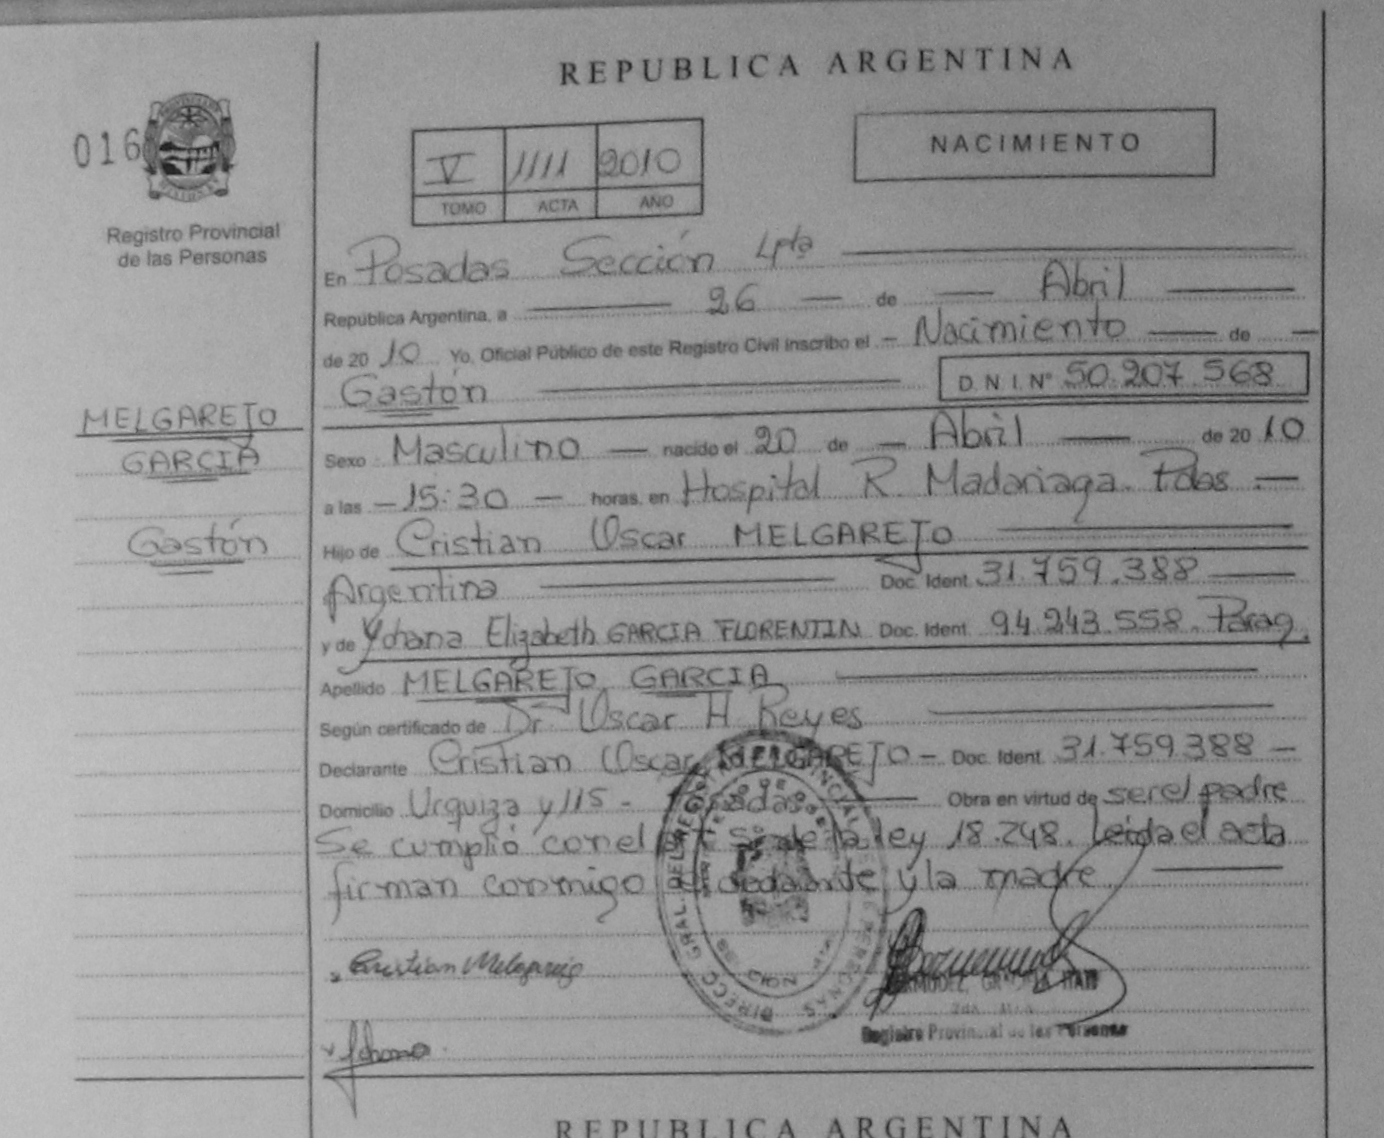 REPUBLICA ARGENTINA
016
NACIMIENTO
V 1111 2010
TOMO ACTA AÑO
Registro Provincial
de las Personas
En Posadas Sección 4pta
República Argentina, a 26 de Abril
de 2010 Yo, Oficial Público de este Registro Civil inscribo el Nacimiento de
Gastón D.N.I. Nº 50.207.568
MELGAREJO
GARCIA
Gastón
Sexo Masculino nacido el 20 de Abril de 2010
a las 15:30 horas, en Hospital R. Madariaga. Pdas.
Hijo de Cristian Oscar MELGAREJO
Argentina Doc. Ident. 31.759.388
y de Yohana Elizabeth GARCIA FLORENTIN Doc. Ident. 94.243.558. Parag.
Apellido MELGAREJO GARCIA
Según certificado de Dr. Oscar H Reyes
Declarante Cristian Oscar MELGAREJO - Doc. Ident. 31.759.388
Domicilio Urquiza y 115 - Posadas Obra en virtud de ser el padre
Se cumplió con el de la ley 18.248. Leída el acta
firman conmigo el declarante y la madre.
Cristian Melgarejo
Yohana
Registro Provincial de las Personas
REPUBLICA ARGENTINA